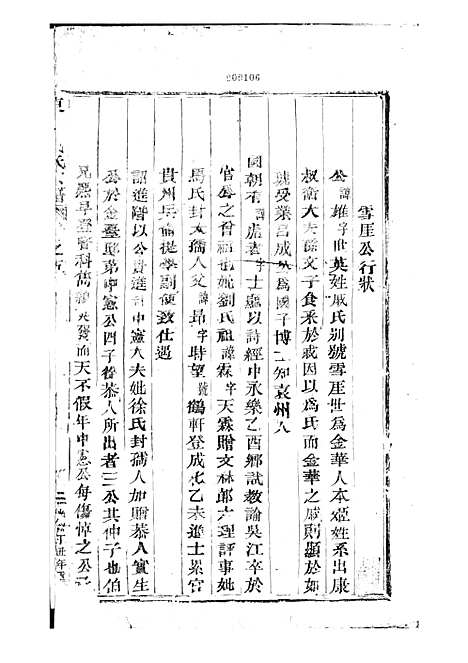 209106
雪厓公行狀
公諱雄字世英姓戚氏别號雪厓世為金華人本姬姓系出康
叔衛大夫孫文子食采於戚因以爲氏而金華之戚則顯於如
琥受業呂成公爲國子博士知袁州入
國朝有諱 字士 以詩經中永樂乙酉鄉試教諭吳江卒於
官公之曾祖也妣劉氏祖諱霖字天霖贈文林郎大理評事妣
馬氏封太孺人父諱昂字時望號鶴軒登成化乙未進士累官
貴州兵備提學副使致仕遇
詔進階以公 進 中憲大夫妣徐氏封孺人加贈恭人實生
公於金臺邸第中憲公四子 恭人所出者三公其仲子也伯
兄熙早登賢科 而天不假年中憲公每傷悼之公
氏 譜 之